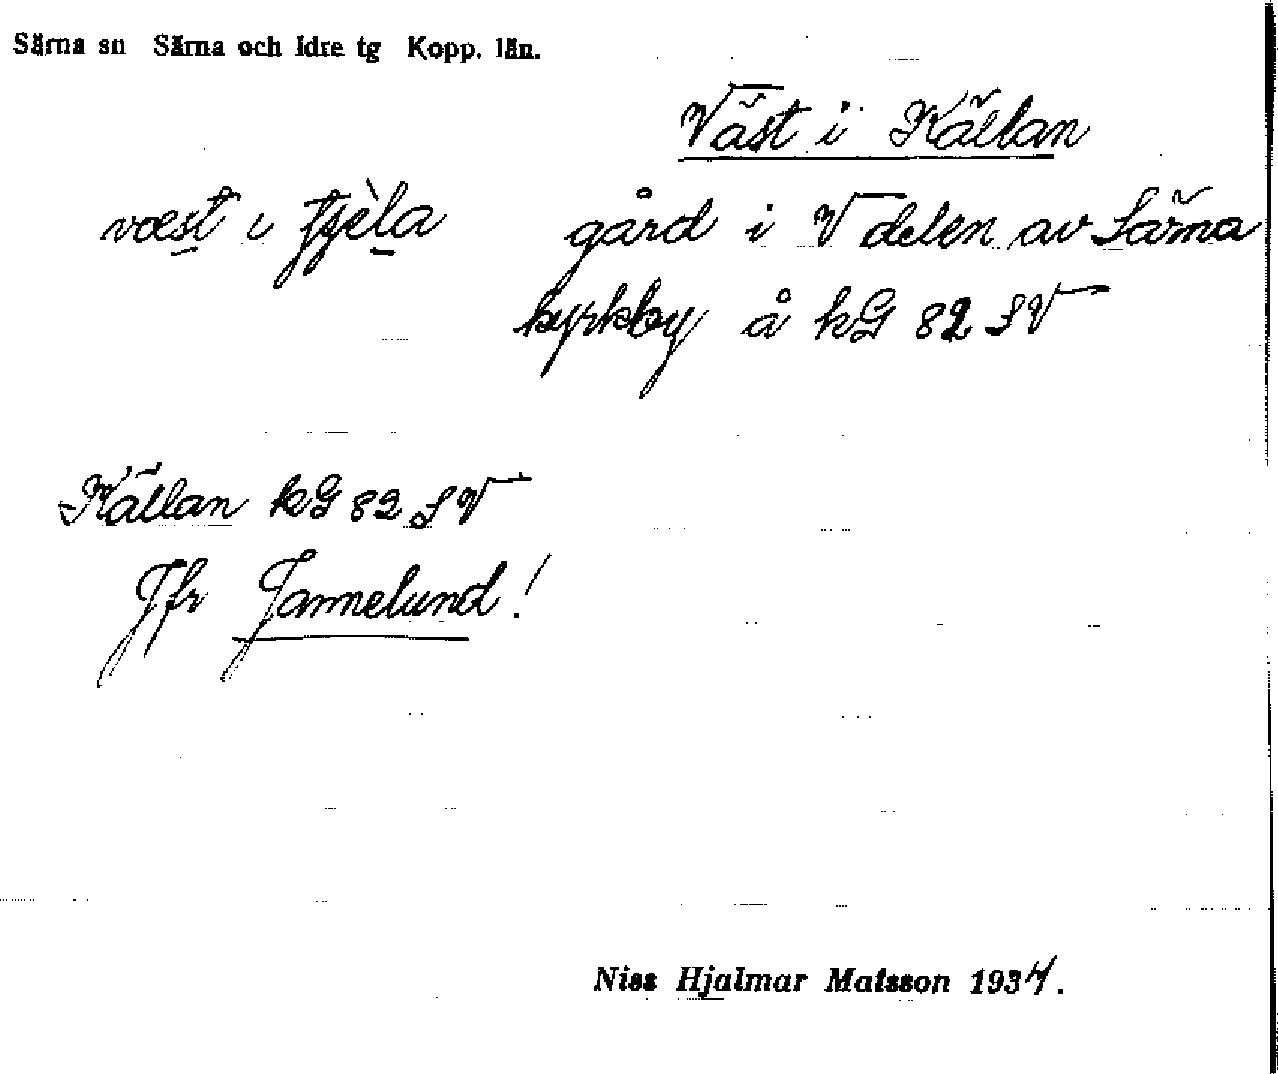 Särna sn Särna och Idre tg Kopp. län.
Väst i Källan
væst i tjèla gård i V delen av Särna
kyrkby å kG 82 SV
Källan kG 82 SV
Jfr Jannelund!
Niss Hjalmar Matsson 1934.